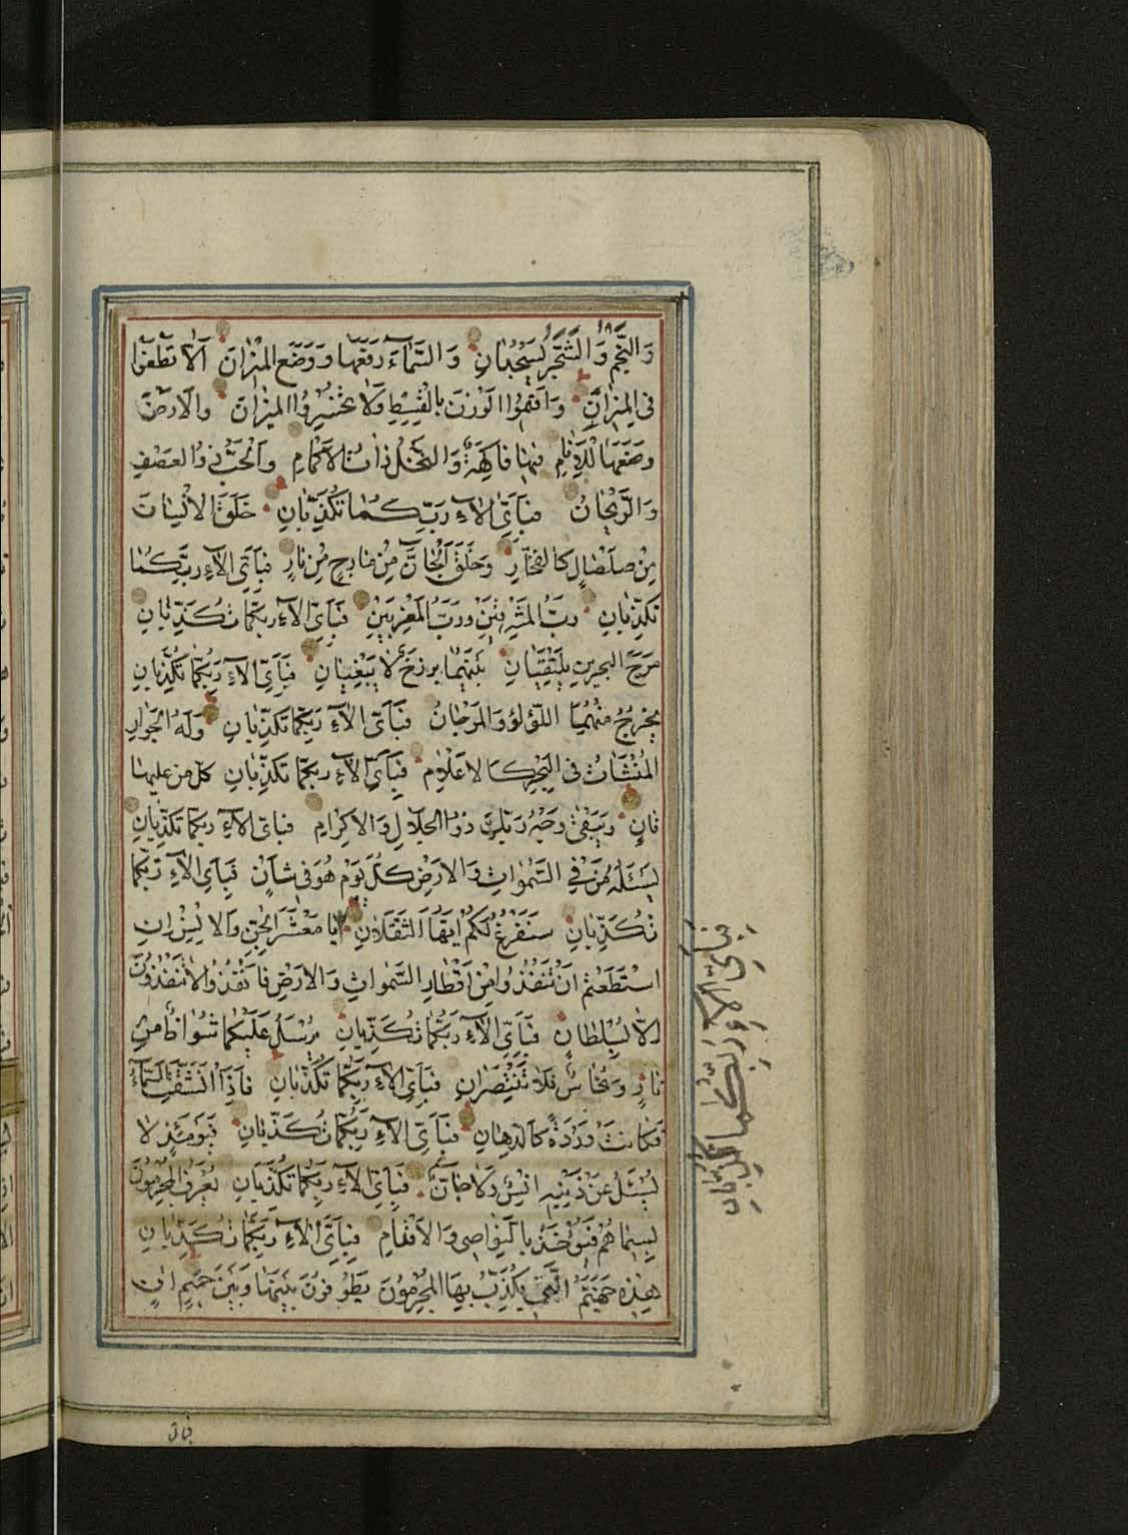 وَالنَّجْمُ وَالشَّجَرُ يَسْجُدَانِ وَالسَّمَاءَ رَفَعَهَا وَوَضَعَ الْمِيزَانَ اَلَّا تَطْغَوْا
فِى الْمِيزَانِ وَاَقِيمُوا الْوَزْنَ بِالْقِسْطِ وَلَا تُخْسِرُوا الْمِيزَانَ وَالْاَرْضَ
وَضَعَهَا لِلْاَنَامِ فِيهَا فَاكِهَةٌ وَالنَّخْلُ ذَاتُ الْاَكْمَامِ وَالْحَبُّ ذُو الْعَصْفِ
وَالرَّيْحَانُ فَبِاَىِّ اٰلَاءِ رَبِّكُمَا تُكَذِّبَانِ خَلَقَ الْاِنْسَانَ
مِنْ صَلْصَالٍ كَالْفَخَّارِ وَخَلَقَ الْجَانَّ مِنْ مَارِجٍ مِنْ نَارٍ فَبِاَىِّ اٰلَاءِ رَبِّكُمَا
تُكَذِّبَانِ رَبُّ الْمَشْرِقَيْنِ وَرَبُّ الْمَغْرِبَيْنِ فَبِاَىِّ اٰلَاءِ رَبِّكُمَا تُكَذِّبَانِ
مَرَجَ الْبَحْرَيْنِ يَلْتَقِيَانِ بَيْنَهُمَا بَرْزَخٌ لَا يَبْغِيَانِ فَبِاَىِّ اٰلَاءِ رَبِّكُمَا تُكَذِّبَانِ
يَخْرُجُ مِنْهُمَا اللُّؤْلُؤُ وَالْمَرْجَانُ فَبِاَىِّ اٰلَاءِ رَبِّكُمَا تُكَذِّبَانِ وَلَهُ الْجَوَارِ
الْمُنْشَاٰتُ فِى الْبَحْرِ كَالْاَعْلَامِ فَبِاَىِّ اٰلَاءِ رَبِّكُمَا تُكَذِّبَانِ كُلُّ مَنْ عَلَيْهَا
فَانٍ وَيَبْقٰى وَجْهُ رَبِّكَ ذُو الْجَلَالِ وَالْاِكْرَامِ فَبِاَىِّ اٰلَاءِ رَبِّكُمَا تُكَذِّبَانِ
يَسْئَلُهُ مَنْ فِى السَّمٰوَاتِ وَالْاَرْضِ كُلَّ يَوْمٍ هُوَ فِى شَاْنٍ فَبِاَىِّ اٰلَاءِ رَبِّكُمَا
تُكَذِّبَانِ سَنَفْرُغُ لَكُمْ اَيُّهَا الثَّقَلَانِ يَا مَعْشَرَ الْجِنِّ وَالْاِنْسِ اِنِ
اسْتَطَعْتُمْ اَنْ تَنْفُذُوا مِنْ اَقْطَارِ السَّمٰوَاتِ وَالْاَرْضِ فَانْفُذُوا لَا تَنْفُذُونَ
اِلَّا بِسُلْطَانٍ فَبِاَىِّ اٰلَاءِ رَبِّكُمَا تُكَذِّبَانِ يُرْسَلُ عَلَيْكُمَا شُوَاظٌ مِنْ
نَارٍ وَنُحَاسٌ فَلَا تَنْتَصِرَانِ فَبِاَىِّ اٰلَاءِ رَبِّكُمَا تُكَذِّبَانِ فَاِذَا انْشَقَّتِ السَّمَاءُ
فَكَانَتْ وَرْدَةً كَالدِّهَانِ فَبِاَىِّ اٰلَاءِ رَبِّكُمَا تُكَذِّبَانِ فَيَوْمَئِذٍ لَا
يُسْئَلُ عَنْ ذَنْبِهِ اِنْسٌ وَلَا جَانٌّ فَبِاَىِّ اٰلَاءِ رَبِّكُمَا تُكَذِّبَانِ يُعْرَفُ الْمُجْرِمُونَ
بِسِيمَاهُمْ فَيُؤْخَذُ بِالنَّوَاصِى وَالْاَقْدَامِ فَبِاَىِّ اٰلَاءِ رَبِّكُمَا تُكَذِّبَانِ
هٰذِهِ جَهَنَّمُ الَّتِى يُكَذِّبُ بِهَا الْمُجْرِمُونَ يَطُوفُونَ بَيْنَهَا وَبَيْنَ حَمِيمٍ اٰنٍ
فَبِاَىِّ اٰلَاءِ رَبِّكُمَا تُكَذِّبَانِ